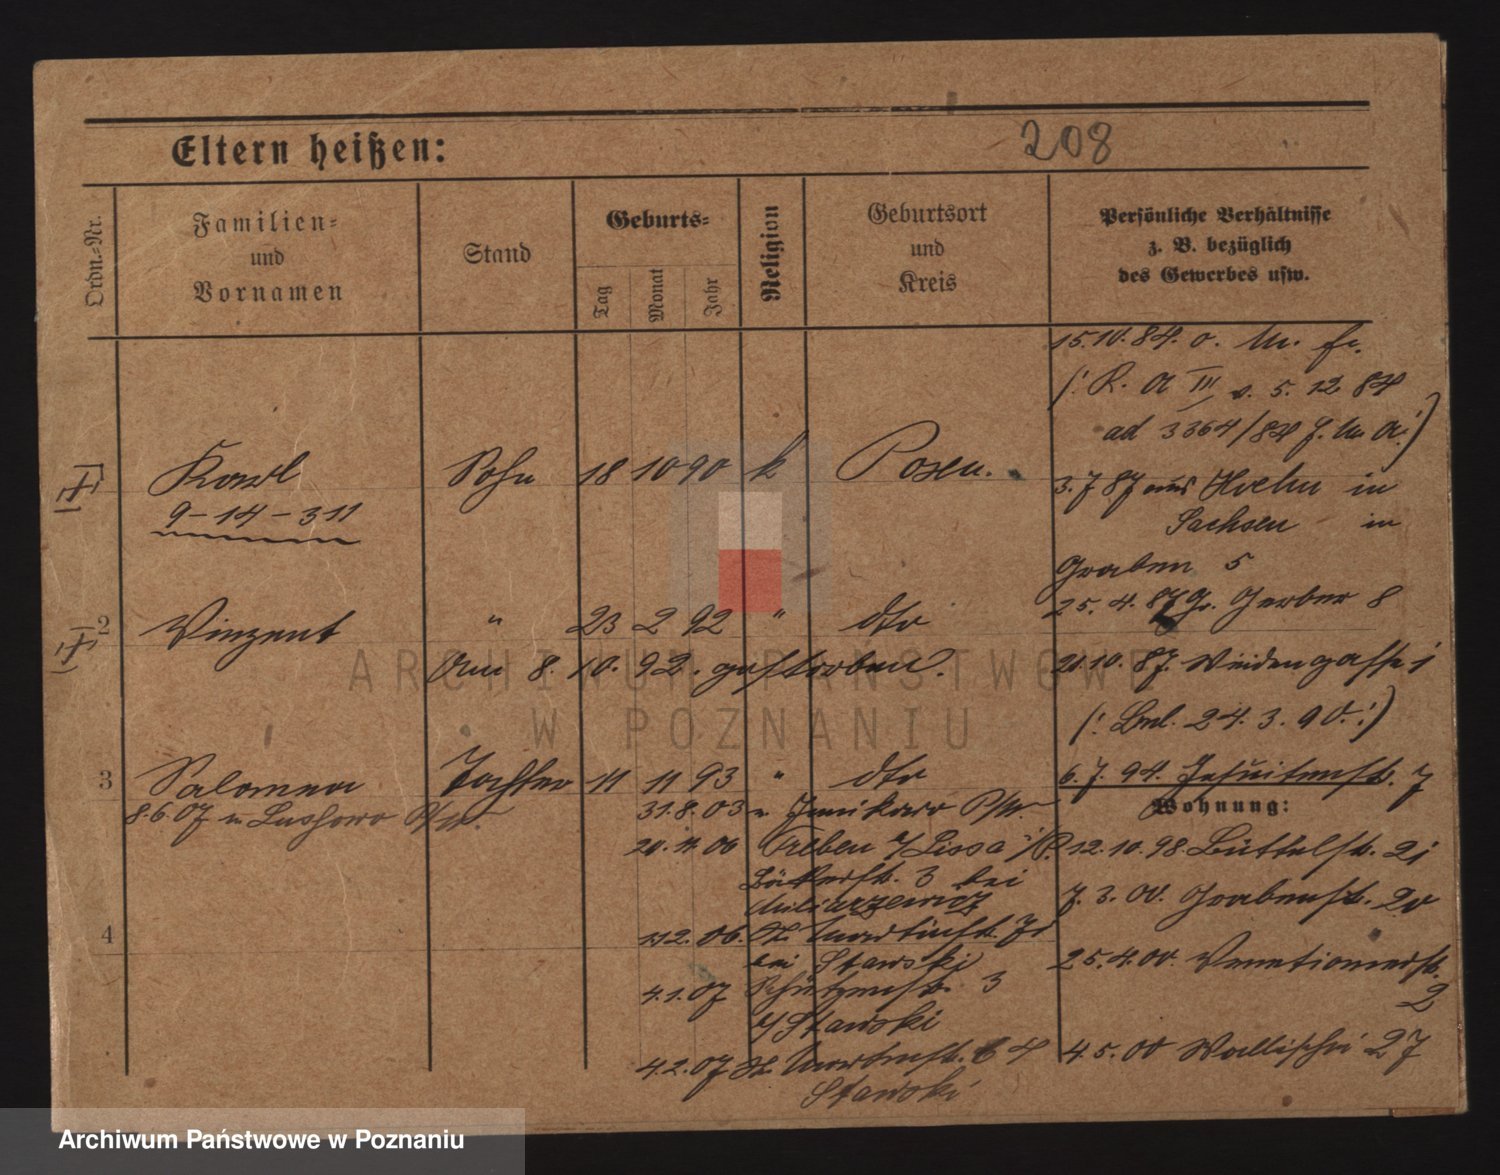 208
Eltern heißen:
Ordn.-Nr.
Familien-
und
Vornamen
Stand
Geburts-
Tag
Monat
Jahr
Religion
Geburtsort
und
Kreis
Persönliche Verhältnisse
z. B. bezüglich
des Gewerbes usw.
15.10.84. o. M. fr.
(: R. A III v. 5. 12 84
ad 3364/84 J. M. A :)
1 Karl Sohn 18 10 90 k Posen.
9-14-311
3.7 87 aus in
Sachsen in
Graben 5
25. 4. 87 Gr. Gerber 8
2 Vinzent " 23 2 92 " dto
Am 8. 10. 92. gestorben.
21.10. 87. Weidengasse 1
(: Bul. 24. 3. 90. :)
3 Salomea Tochter 11 11 93 " dto
6. 7. 94. Jesuitenstr. 7
8.6.07 n Lussowo P/W.
Wohnung:
31.8.03 n. Junikowo P/W.
20. 11. 06 Treben b/ Lissa i/P.
12. 10. 98. Büttelstr. 21
Bäckerstr. 3 bei
7. 3. 00. Grabenstr. 20
4
1.12. 06. St. Martinstr.
bei Stawski
25. 4. 00. Venetianerstr.
2
4.1.07 Schützenstr. 3
b/ Stawski
4.5.00 Wallischei 27
4.2.07 St. Martinstr. 64
Stawski
ARCHIWUM PAŃSTWOWE
W POZNANIU
Archiwum Państwowe w Poznaniu